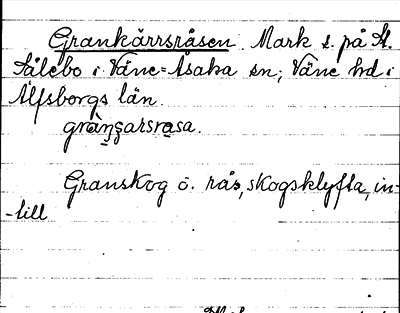 Grankärrsråsen Mark s. på St.
Sålebo i Väne=Åsaka sn; Väne hd i
Älfsborgs län.
gràngarsrasa.
Granskog o. rås, skogsklyfta, in-
-till